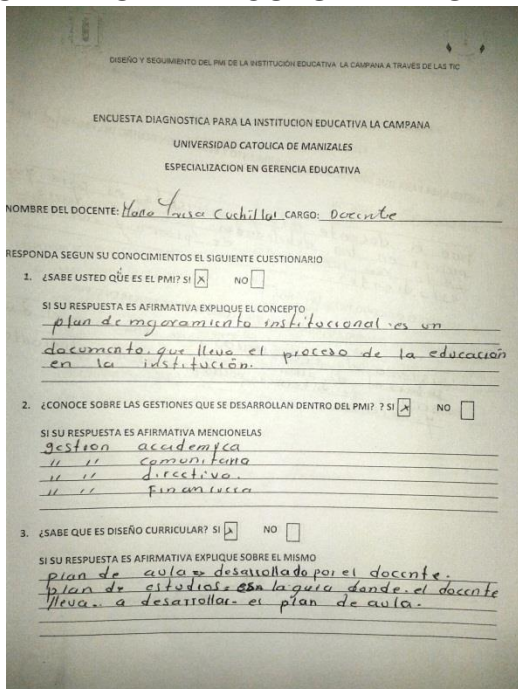 DISEÑO Y SEGUIMIENTO DEL PMI DE LA INSTITUCIÓN EDUCATIVA LA CAMPANA A TRAVÉS DE LAS TIC
ENCUESTA DIAGNOSTICA PARA LA INSTITUCION EDUCATIVA LA CAMPANA
UNIVERSIDAD CATOLICA DE MANIZALES
ESPECIALIZACION EN GERENCIA EDUCATIVA
NOMBRE DEL DOCENTE: Cuchillo CARGO: Docente
RESPONDA SEGUN SU CONOCIMIENTOS EL SIGUIENTE CUESTIONARIO
1. ¿SABE USTED QÚE ES EL PMI? SI X NO
SI SU RESPUESTA ES AFIRMATIVA EXPLIQUE EL CONCEPTO
plan de mejoramiento institucional es un
documento. que lleva el proceso de la educación
en la institución.
2. ¿CONOCE SOBRE LAS GESTIONES QUE SE DESARROLLAN DENTRO DEL PMI? ? SI X NO
SI SU RESPUESTA ES AFIRMATIVA MENCIONELAS
gestion academica
" " comunitaria
" " directivo.
" " Financiera
3. ¿SABE QUE ES DISEÑO CURRICULAR? SI X NO
SI SU RESPUESTA ES AFIRMATIVA EXPLIQUE SOBRE EL MISMO
plan de aula = desarrollado por el docente.
plan de estudios = la guia donde el docente
lleva a desarrollar el plan de aula.